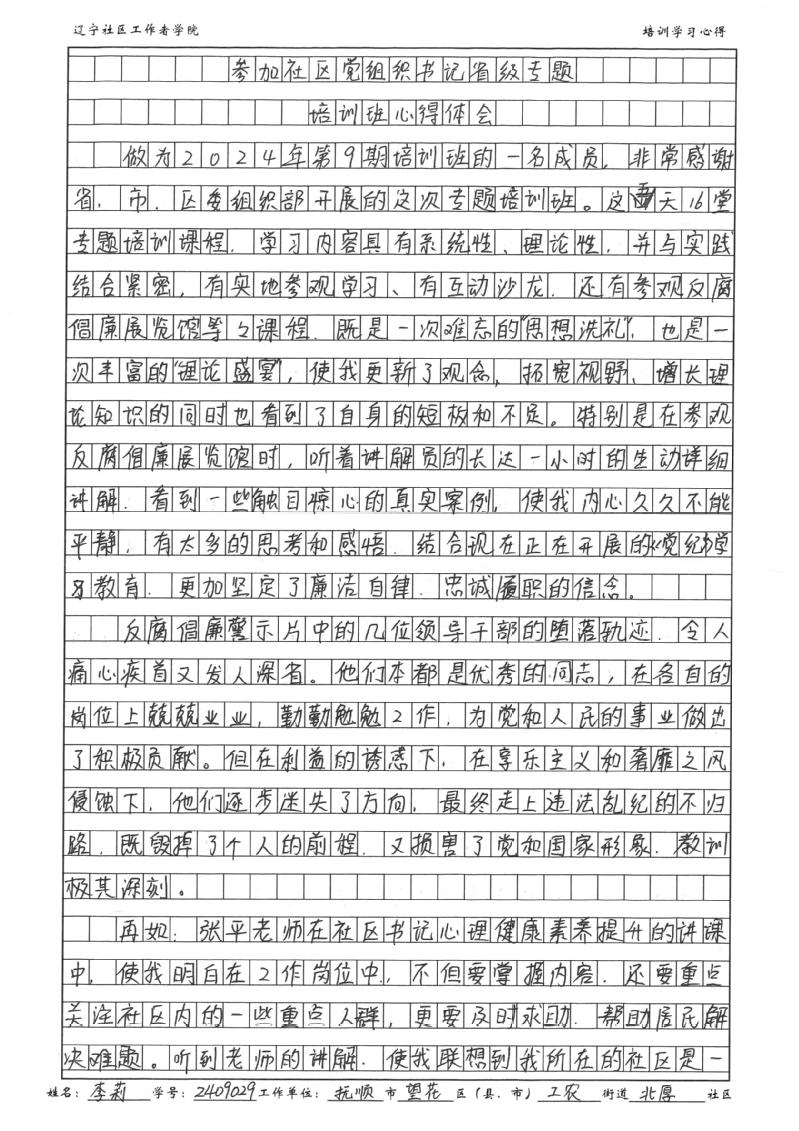 辽宁社区工作者学院 培训学习心得
参加社区党组织书记省级专题
培训班心得体会
做为2024年第9期培训班的一名成员,非常感谢
省、市、区委组织部开展的这次专题培训班。这五天16堂
专题培训课程,学习内容具有系统性、理论性,并与实践
结合紧密,有实地参观学习、有互动沙龙,还有参观反腐
倡廉展览馆等等课程,既是一次难忘的"思想洗礼",也是一
次丰富的"理论盛宴",使我更新了观念,拓宽视野、增长理
论知识的同时也看到了自身的短板和不足。特别是在参观
反腐倡廉展览馆时,听着讲解员的长达一小时的生动详细
讲解,看到一些触目惊心的真实案例,使我内心久久不能
平静,有太多的思考和感悟,结合现在正在开展的《党纪》学
习教育,更加坚定了廉洁自律、忠诚履职的信念。
反腐倡廉警示片中的几位领导干部的堕落轨迹,令人
痛心疾首又发人深省。他们本都是优秀的同志,在各自的
岗位上兢兢业业,勤勤勉勉工作,为党和人民的事业做出
了积极贡献。但在利益的诱惑下,在享乐主义和奢靡之风
侵蚀下,他们逐步迷失了方向,最终走上违法乱纪的不归
路,既毁掉了个人的前程,又损害了党和国家形象,教训
极其深刻。
再如:张平老师在社区书记心理健康素养提升的讲课
中,使我明白在工作岗位中,不但要掌握内容,还要重点
关注社区内的一些重点人群,更要及时求助,帮助居民解
决难题。听到老师的讲解,使我联想到我所在的社区是一
姓名:李莉 学号:2409029 工作单位:抚顺市望花区(县、市)工农街道北厚社区